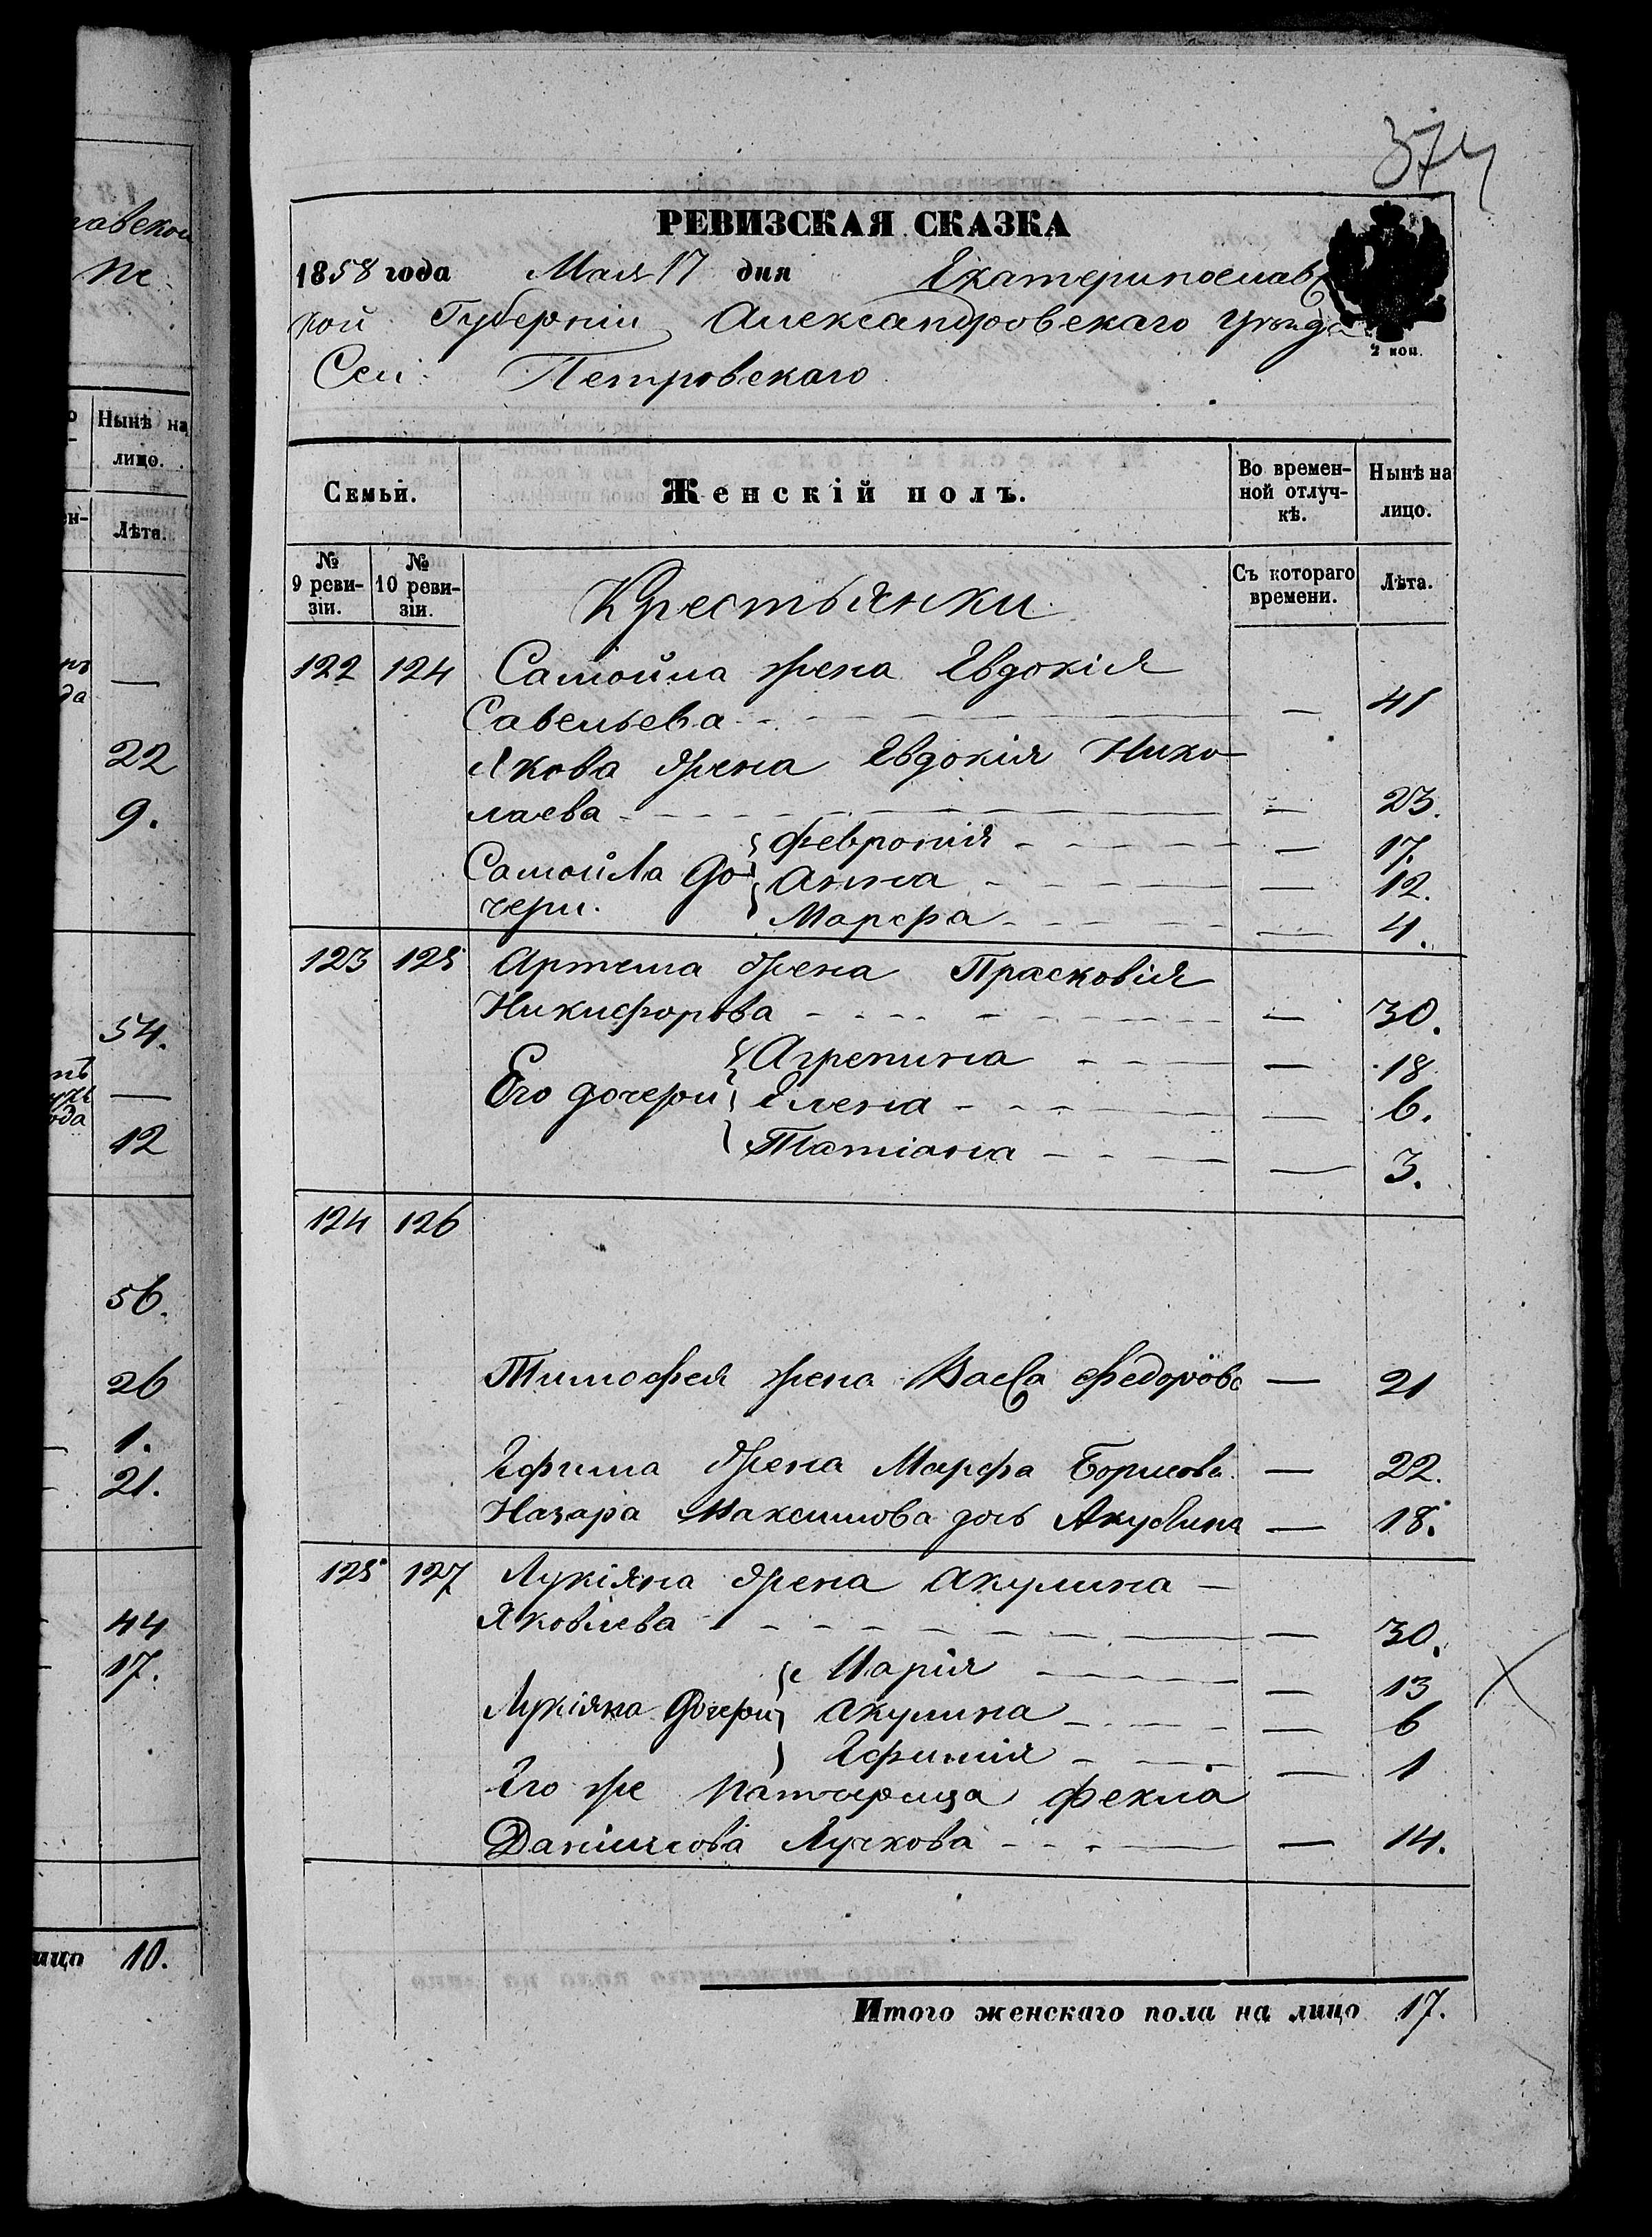 374
РЕВИЗСКАЯ СКАЗКА
1858 года Мая 17 дня Екатеринославс
кой Губерніи Александровскаго Уѣзда
2 коп.
Сел: Петровскаго
Семьи. Женскій полъ. Во времен-
ной отлуч-
кѣ. Нынѣ на
лицо.
№
9 реви-
зіи. №
10 реви-
зіи. Съ котораго
времени. Лѣта.
Крестьянки.
122 124 Самойла жена Евдокія
Савельева — 41
Якова жена Евдокія Нико-
лаева — 23.
Февронія — 17.
Самойла до- Анна — 12.
чери. Марфа — 4.
123 125 Артема жена Прасковія
Никифорова — 30.
Агрепина — 18
Его дочери Елена — 6.
Татіана — 3.
124 126
Тимофея жена Васса Федорова — 21
Ефима жена Марфа Борисова — 22.
Назара Максимова дочь Акулина — 18.
125 127 Лукіяна жена Акулина —
Яковлева — 30.
Марія — 13
Лукіяна дочери Акулина — 6
Ефимія — 1
Его же Падчерица Фекла
Данилова Лучкова — 14.
Итого женскаго пола на лицо 17.
Нынѣ на
лицо.
Лѣта.
—
22
9.
54.
—
12
56.
26
1.
21.
44
17.
лицо 10.